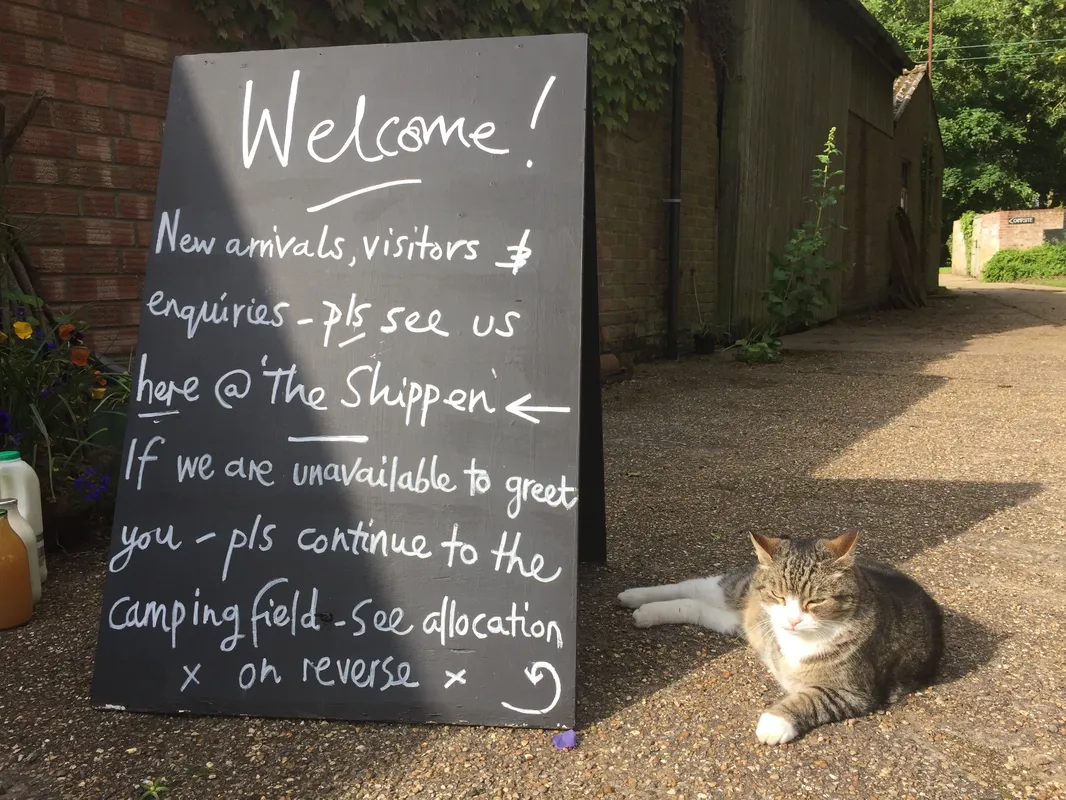 Welcome!
New arrivals, visitors &
enquiries - pls see us
here @ 'The Shippen' ←
If we are unavailable to greet
you - pls continue to the
camping field - see allocation
x on reverse x